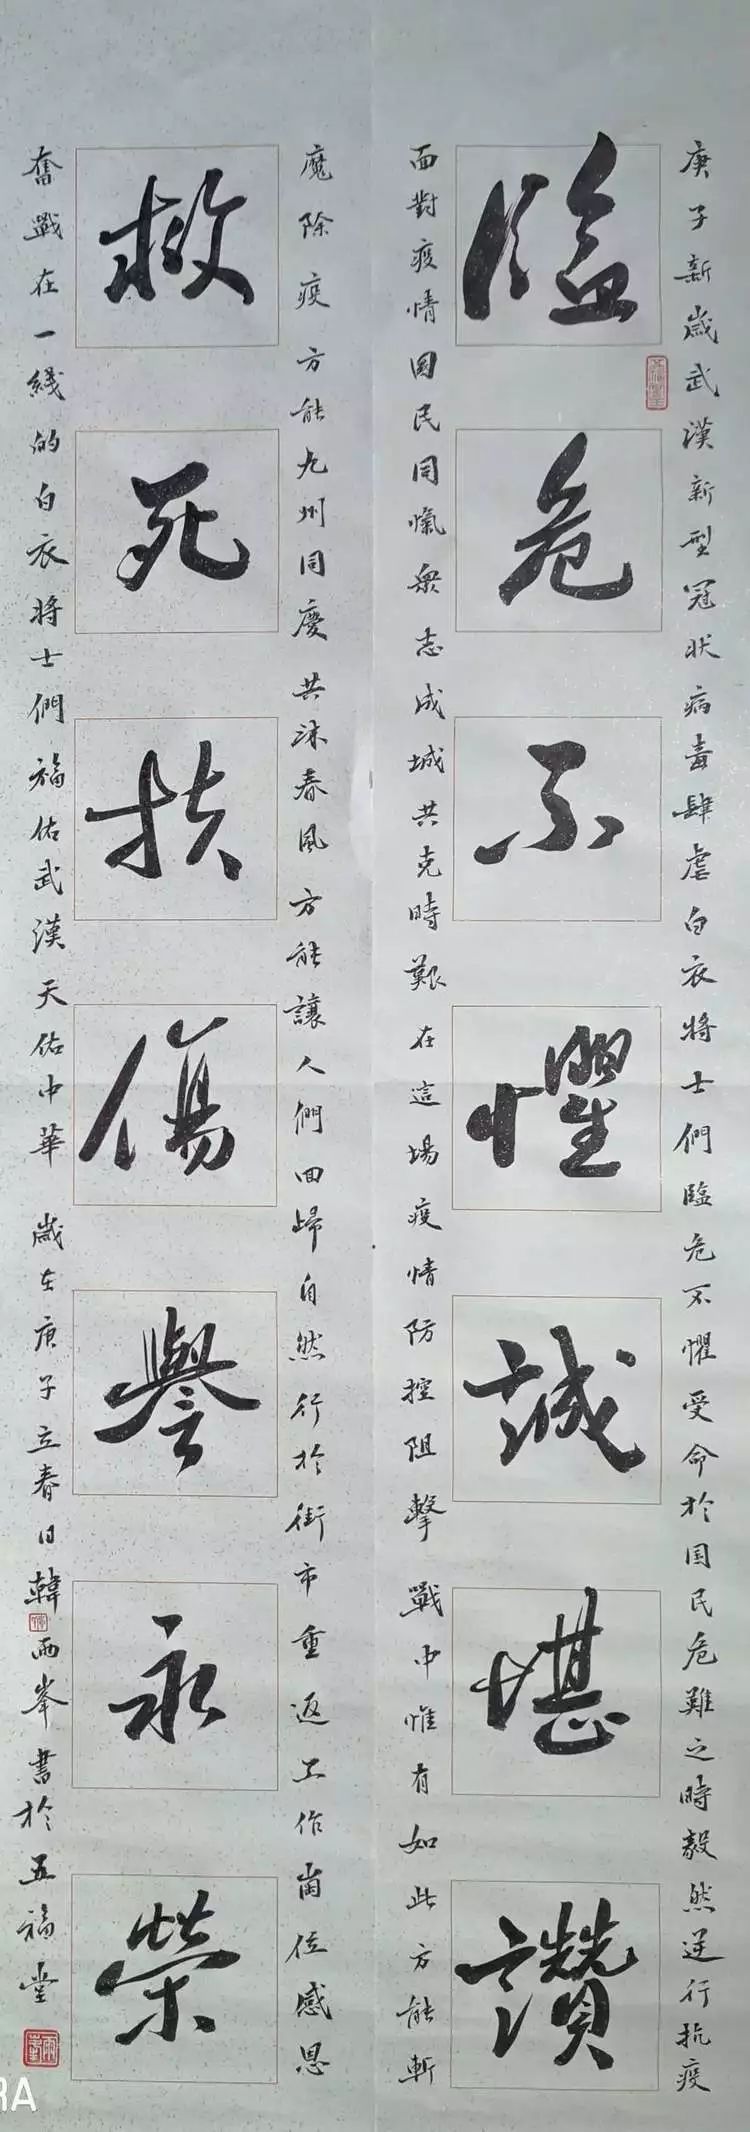 庚子新歲武漢新型冠狀病毒肆虐白衣將士們臨危不懼受命於国民危難之時毅然逆行抗疫
臨危不懼誠堪讚
面對疫情國民同愾衆志成城共克時艱在這場疫情防控阻擊戰中惟有如此方能斬
魔除疫方能九州同慶共沐春風方能讓人們回歸自然行於街市重返工作崗位感恩
救死扶傷譽永榮
奮戰在一綫的白衣將士們福佑武漢天佑中華 歲在庚子立春日韓雨峯書於五福堂
RA